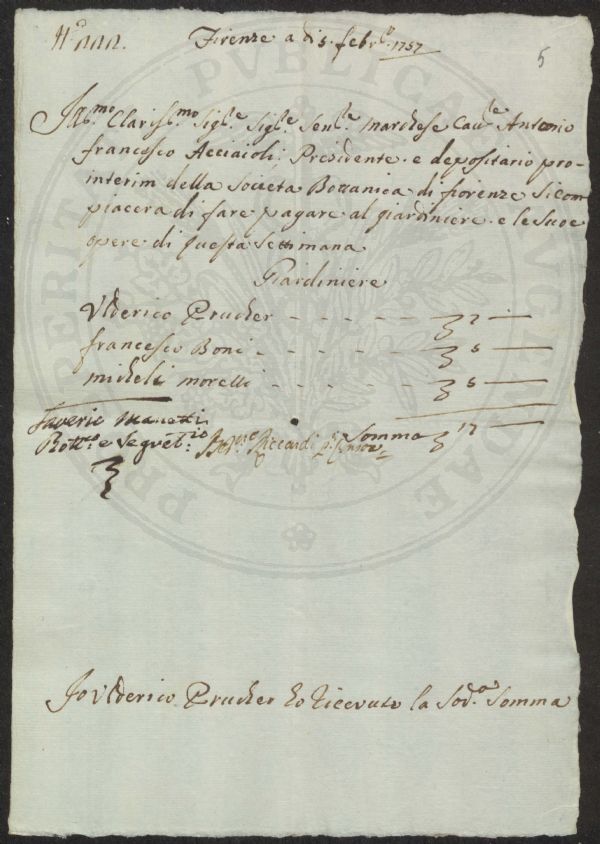 Firenze a dì 5. febr.º 1757
5
Ill.mo Clariss.mo Sig.re Sig.re Sen.re Marchese Cav.re Antonio
francesco Acciaioli, Presidente e depositario pro-
interim della Societa Bottanica di fiorenze Si com
piacera di fare pagare al giardiniere e le Sue
opere di questa Settimana
Giardiniere
Ulderico Prucher - - - - - 7 —
francesco Boni - - - - - 5 —
micheli morelli - - - - - 5 —
Saverio Manetti
Somma 17 —
Bott.co e Segret.rio Ber.ne Riccardi
Io Ulderico Prucher ho ricevuto la Sod.a Somma
PVBLICAE
PROSPERITATI
AVGENDAE